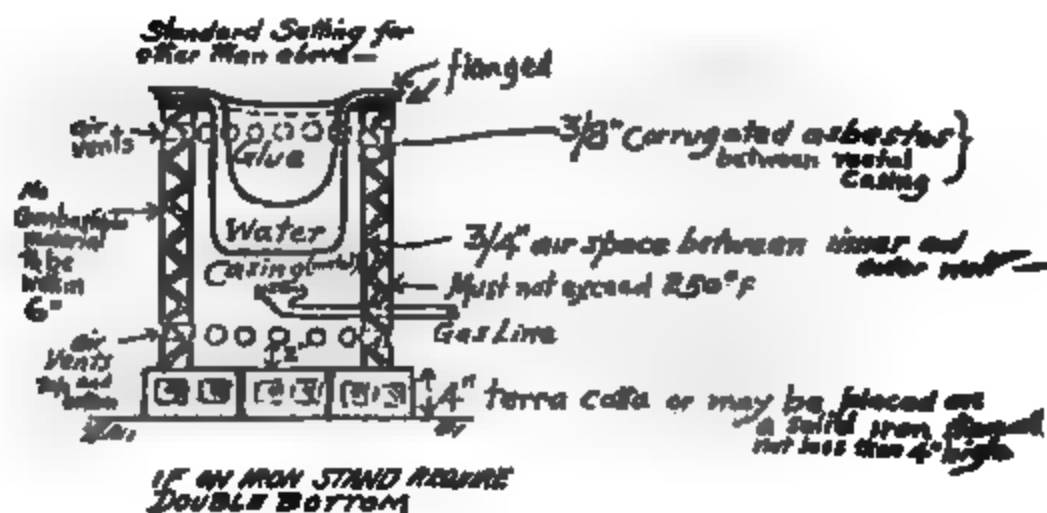 Standard Setting for
other than above—
flanged
air
vents
Glue
3/8" Corrugated asbestos
between metal
Casing
No
Combustible
material
to be
within
6"
Water
3/4" air space between inner and
outer
Casing (metal)
Must not exceed 250°F
Gas Line
air
Vents
and
2"
4" terra cotta or may be placed on
a solid iron
not less than 4" high
IF ON IRON STAND REQUIRE
DOUBLE BOTTOM